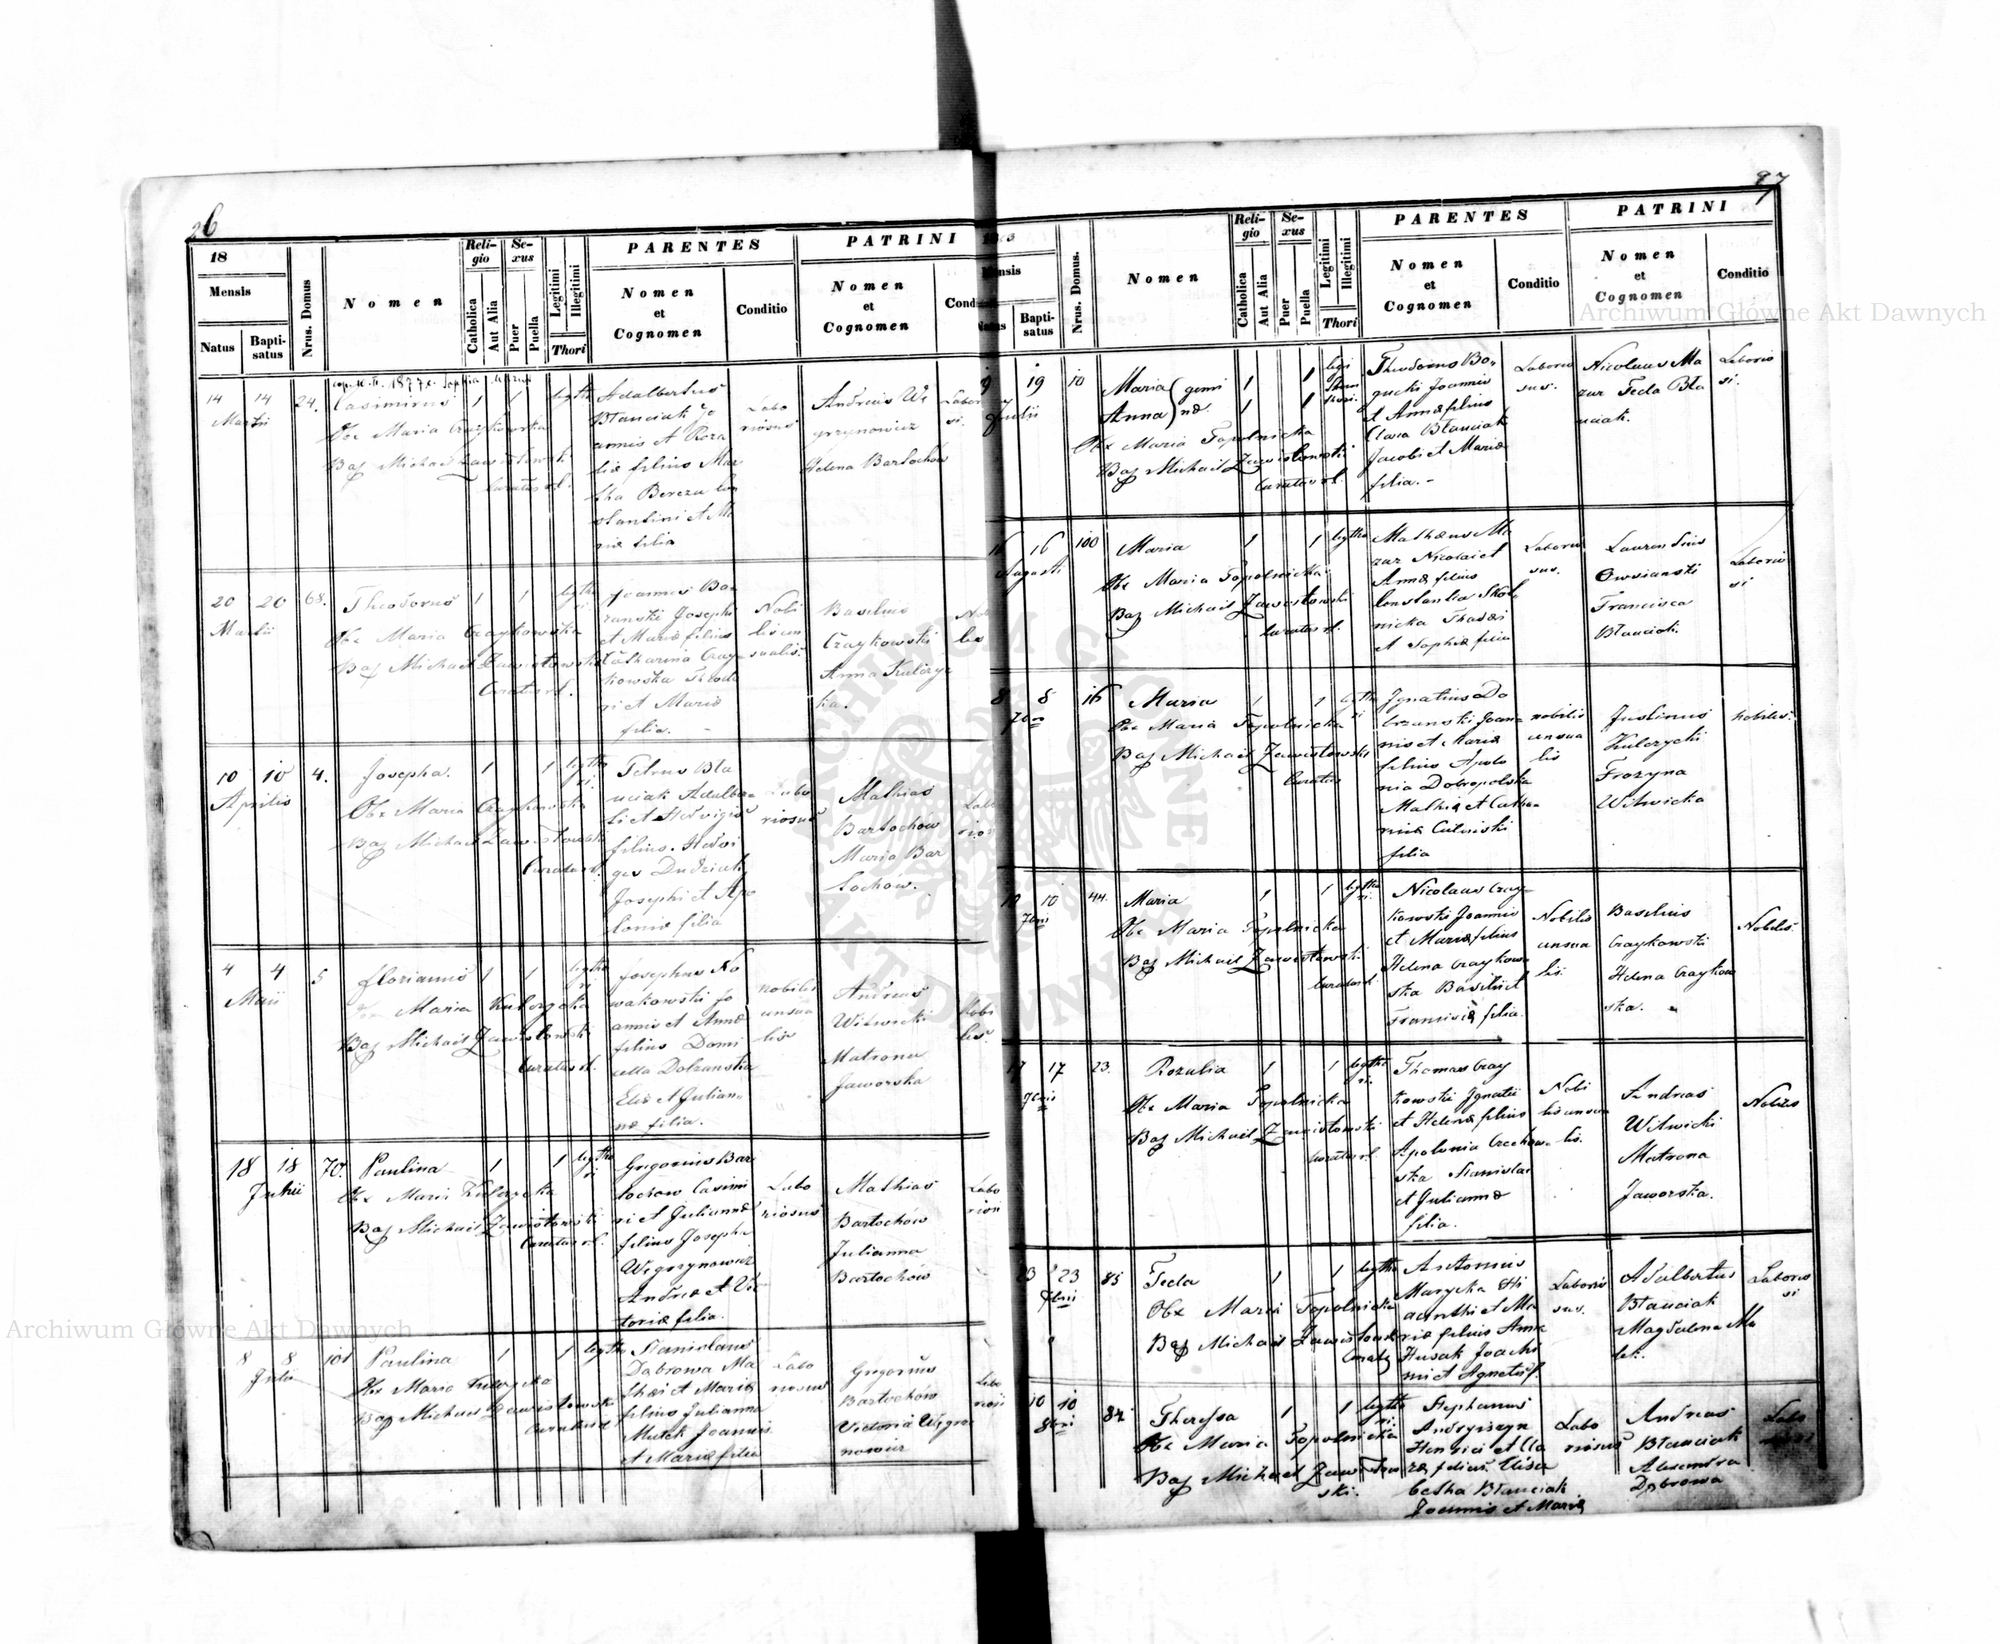 26
18
Mensis
Natus
Bapti-
satus
Nrus. Domus
Nomen
Reli-
gio
Catholica
Aut Alia
Se-
xus
Puer
Puella
Legitimi
Illegitimi
Thori
PARENTES
Nomen
et
Cognomen
Conditio
PATRINI
Nomen
et
Cognomen
14 14 24.
Martii
Casimirus 1 1
Obx Maria Czaykowska
Bap Michael Zawistowski
Curatus
Adalbertus
Blauciak Jo
annis et Roza
liæ filius Mar
tha Bereza Con
stantini et Ma
riæ filia
Labo
riosus
Andreas Wę
grzynowicz
Helena Bartochów
20 20 68.
Martii
Theodorus 1 1
Obx Maria Czaykowska
Bap Michael Zawistowski
Curatus
Joannes Bo
zanski Josephi
et Mariæ filius
Catharina Czay
kowska Theodo
ri et Mariæ
filia.
Nobi
lis un
sualis.
Basilius
Czaykowski
Anna Kulczyc
ka.
10 10 4.
Aprilis
Josepha. 1 1
Obx Maria Czaykowska
Bap Michael Zawistowski
Curatus
Petrus Bla
uciak Adalber
ti et Hedvigis
filius. Hedvi
ges Dudziak
Josephi et Apo
loniæ filia
Labo
riosus
Mathias
Bartochow
Maria Bar
tochów.
4 4 5
Maii
Florianus 1 1
Obx Maria Kulczycka
Bap Michael Zawistowski
Curatus
Josephus No
wakowski Jo
annis et Annæ
filius Domi
cella Dolzanska
Eliæ et Julian
næ filia.
nobilis
unsua
lis
Andreas
Witwicki
Matrona
Jaworska
18 18 70.
Junii
Paulina 1 1
Obx Maria Kulczycka
Bap Michael Zawistowski
Curatus
Grigorius Bar
tochow Casimi
ri et Juliannæ
filius Josepha
Węgrzynowicz
Andreæ et Vic
toriæ filia.
Labo
riosus
Mathias
Bartochów
Julianna
Bartochów
8 8 101
Julii
Paulina 1 1
Obx Maria Kulczycka
Bap Michael Zawistowski
Stanislaus
Dąbrowa Ma
thæi et Mariæ
filius Julianna
Mutek Joannis
et Mariæ filia
Labo
riosus
Grigorius
Bartochów
Victoria Węgrzy
nowicz
97
Bapti-
satus
Nrus. Domus.
Nomen
Reli-
gio
Catholica
Aut Alia
Se-
xus
Puer
Puella
Legitimi
Illegitimi
Thori
PARENTES
Nomen
et
Cognomen
Conditio
PATRINI
Nomen
et
Cognomen
Conditio
19 10
Julii
Maria gemi 1 1
Anna næ. 1 1
Obx Maria Topolnicka
Bap Michael Zawistowski
Curatus
Theodorus Bo
gucki Joannis
et Annæ filius
Clara Blauciak
Jacobi et Mariæ
filia.
Laborio
sus.
Nicolaus Ma
zur Tecla Bla
uciak.
Laborio
si.
16 16 100
Augusti
Maria 1 1
Obx Maria Topolnicka
Bap Michael Zawistowski
Curatus
Mathæus Ma
zur Nicolai et
Annæ filius
Constantia Skol
nicka Thadei
et Sophiæ filia
Laborio
sus.
Laurentius
Owsianski
Francisca
Blauciak.
Laborio
si
8 8 16
7bris
Maria 1 1
Obx Maria Topolnicka
Bap Michael Zawistowski
Curatus
Ignatius Do
brzanski Joan
nis et Mariæ
filius Apolo
nia Dobropolska
Mathiæ et Catha
rinæ
filia
nobilis
unsua
lis
Justinus
Kulczycki
Frozyna
Witwicka
nobiles.
10 10 44.
7bris
Maria 1 1
Obx Maria Topolnicka
Bap Michael Zawistowski
Curatus
Nicolaus Czay
kowski Joannis
et Mariæ filius
Helena Czaykow
ska Basilii et
Franciscæ filia
Nobilis
unsua
lis.
Basilius
Czaykowski
Helena Czaykow
ska.
Nobiles.
17 17 23.
7bris
Rozalia 1 1
Obx Maria Topolnicka
Bap Michael Zawistowski
Curatus
Thomas Czay
kowski Ignatii
et Helenæ filius
Apolonia Czechow
ska Stanislai
et Juliannæ
filia.
Nobi
lis unsua
lis.
Andreas
Witwicki
Matrona
Jaworska.
Nobiles
23 23 85
7bris
Tecla 1 1
Obx Maria Topolnicka
Bap Michael Zawistowski
Curatus
Antonius
Marycka Hi
acinthi et Ma
riæ filius Anna
Husak Joachi
mi et Agnetis f.
Laborio
sus.
Adalbertus
Blauciak
Magdalena Mu
tek.
Laborio
si
10 10 87
8bris
Theressa 1 1
Obx Maria Topolnicka
Bap Michael Zawistow
ski.
Stephanus
Andryiszyn
Henrici et Cla
ræ filius Elisa
betha Blauciak
Joannis et Mariæ
Labo
riosus
Andreas
Blauciak
Alexandra
Dąbrowa
Labo
Archiwum Główne Akt Dawnych
Archiwum Główne Akt Dawnych
ARCHIWUM GŁÓWNE AKT DAWNYCH